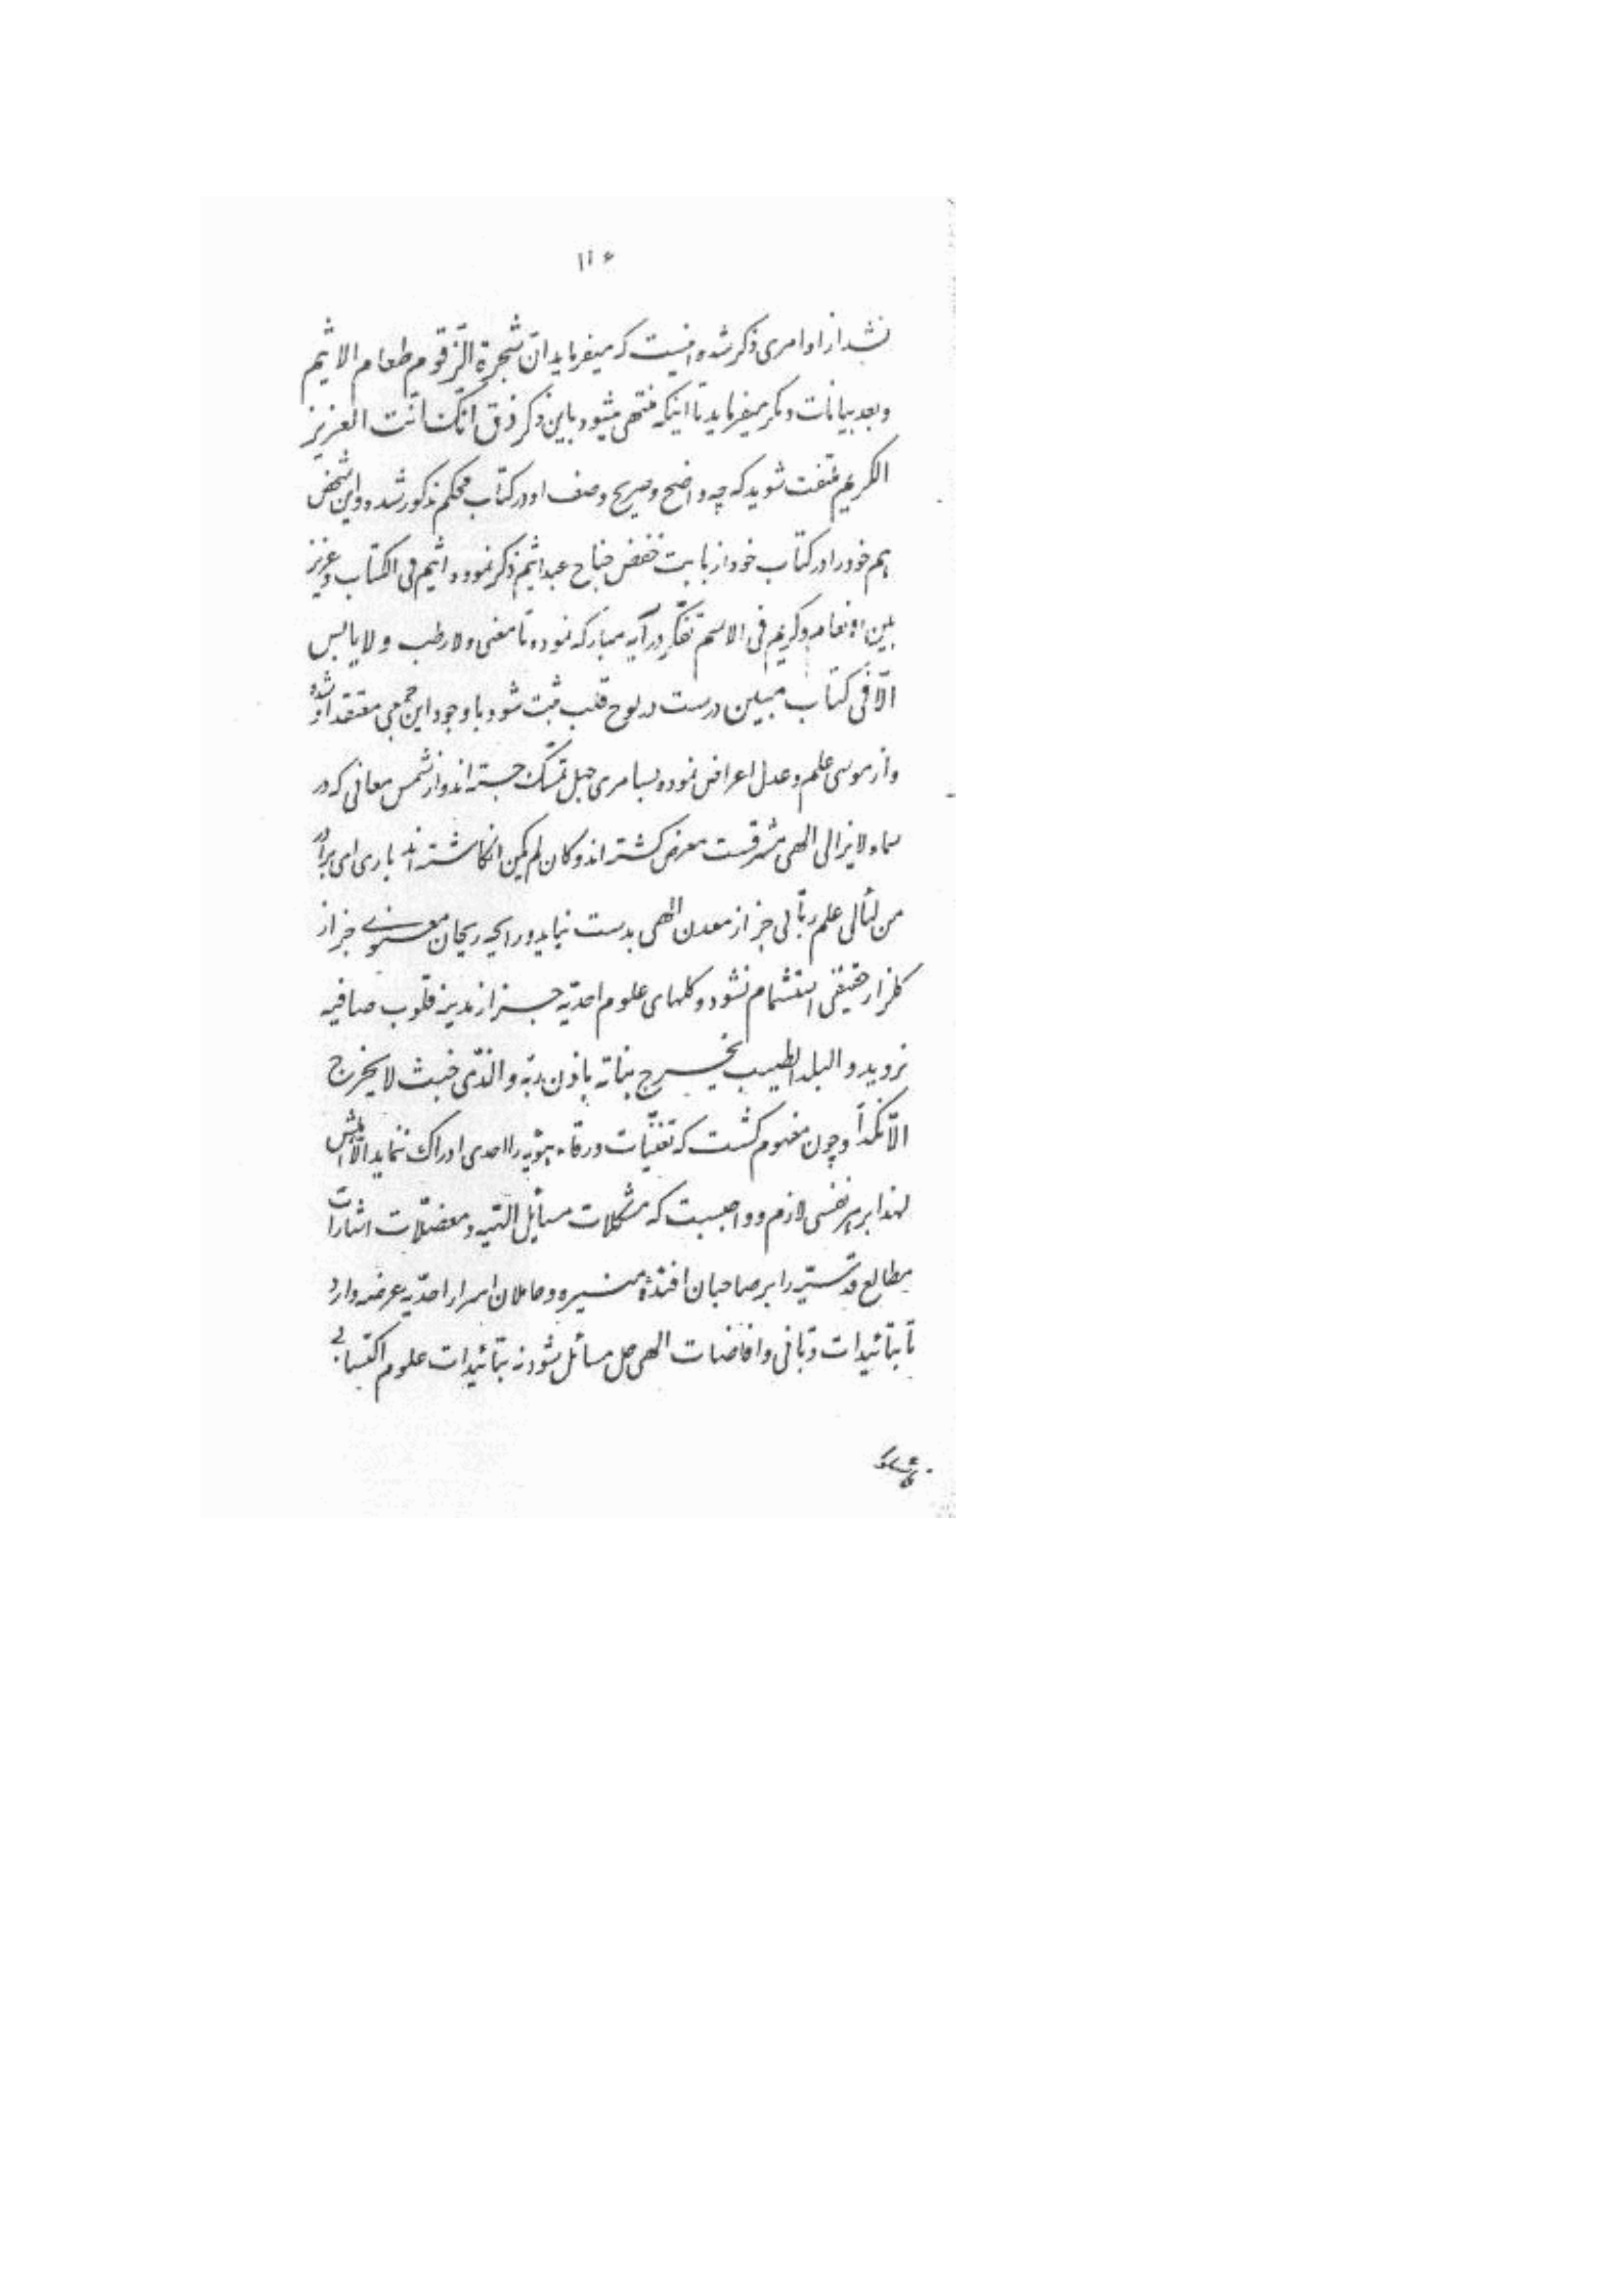 ۱۱۶
نشد از او امری ذکر شده اینست که میفرماید انّ شجرة الزّقّوم طعام الاثیم
و بعد بیانات دیگر میفرماید تا اینکه منتهی میشود باین ذکر ذق انّک انت العزیز
الکریم ملتفت شوید که چه واضح و صریح وصف او در کتاب محکم مذکور شده و این شخص
هم خود را در کتاب خود از بابت خفض جناح عبد اثیم ذکر نموده اثیم فی الکتاب و عزیز
بین الانعام و کریم فی الاسم تفکّر در آیه مبارکه نموده تا معنی و لا رطب و لا یابس
الّا فی کتاب مبین درست در لوح قلب ثبت شود با وجود این جمعی معتقد او شده
و از موسی علم و عدل اعراض نموده بسامری جهل تمسّک جسته‌اند و از شمس معانی که در
سماء لایزالی الهی مشرقست معرض گشته‌اند و کان لم یکن انگاشته‌اند باری ای برادر
من لئالی علم ربّانی جز از معدن الهی بدست نیاید و رایحه ریحان معنوی جز از
گلزار حقیقی استشمام نشود و گلهای علوم احدیّه جز از مدینه قلوب صافیه
نروید و البلد الطیب یخرج نباته باذن ربّه و الّذی خبث لا یخرج
الّا نکداً و چون مفهوم گشت که تغنّیات ورقاء هویّه را احدی ادراک ننماید الّا اهلش
لهذا بر هر نفسی لازم و واجبست که مشکلات مسایل الهیّه و معضلات اشارات
مطالع قدسیّه را بر صاحبان افئدهٔ منیره و حاملان اسرار احدیّه عرضه دارد
تا بتائیدات ربّانی و افاضات الهی حل مسائل شود نه بتائیدات علوم اکتسابی